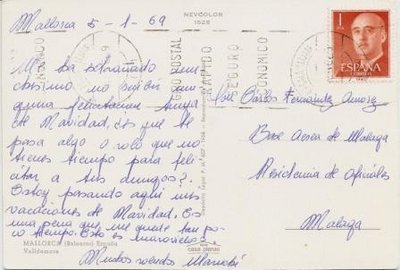 Mallorca 5-1-69
NEVCOLOR
Me ha extrañado muchisimo no recibir ninguna felicitacion tuya
de Navidad. ¿Es que te
pasa algo o solo que no
tienes tiempo para felicitar a tus amigos?
Estoy pasando aqui mis
vacaciones de Navidad. Es
una pena que me quede tan poco tiempo. Esto es maravilloso.
Muchos saludos
MALLORCA (Baleares) España
Valldemosa
GIRO POSTAL
RAPIDO
SEGURO
ECONOMICO
1 PTA
ESPAÑA
CORREOS
José Carlos Fernandez
Base Aerea de Malaga
Residencia de Oficiales
Malaga